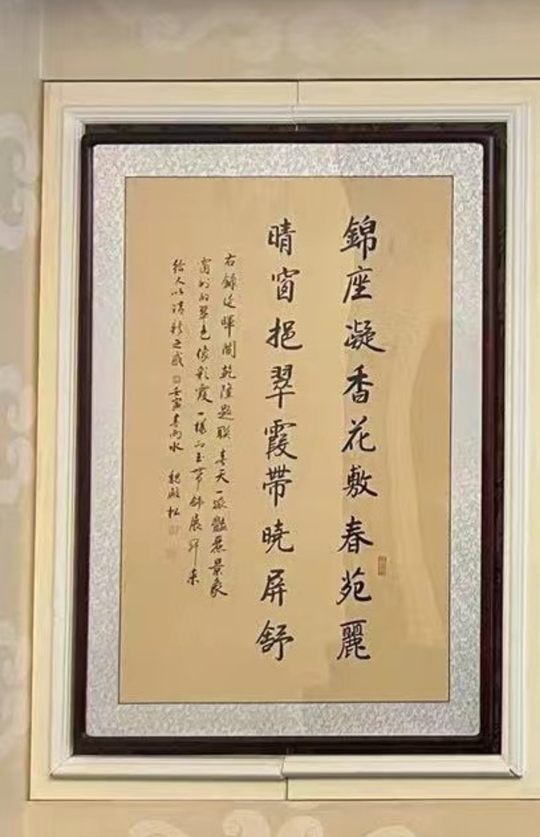 錦座凝香花敷春苑麗
晴窗挹翠霞帶曉屏舒
右錄延暉閣乾隆題聯春天一派豔麗景象
窗外的翠色像彩霞一樣如玉帶舒展開來
給人以清新之感 壬寅春雨水 魏殿松